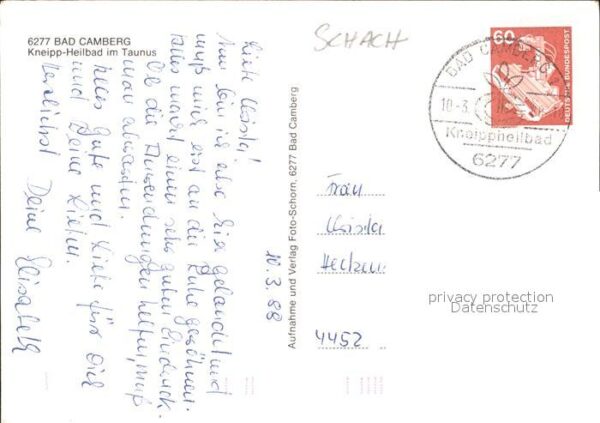 6277 BAD CAMBERG
Kneipp-Heilbad im Taunus
SCHACH
60
DEUTSCHE BUNDESPOST
BAD CAMBERG
10.-3.
Kneippheilbad
6277
10.3.88
Nun bin ich also hier gelandet und
muß mich erst an die Ruhe gewöhnen.
Haus macht einen sehr guten Eindruck.
Ob die Anwendungen helfen, muß
man abwarten.
Alles Gute und Liebe für Dich
und Deine Lieben.
Herzlichst Deine Elisabeth
Aufnahme und Verlag Foto-Schorn, 6277 Bad Camberg
Frau
4452
privacy protection
Datenschutz